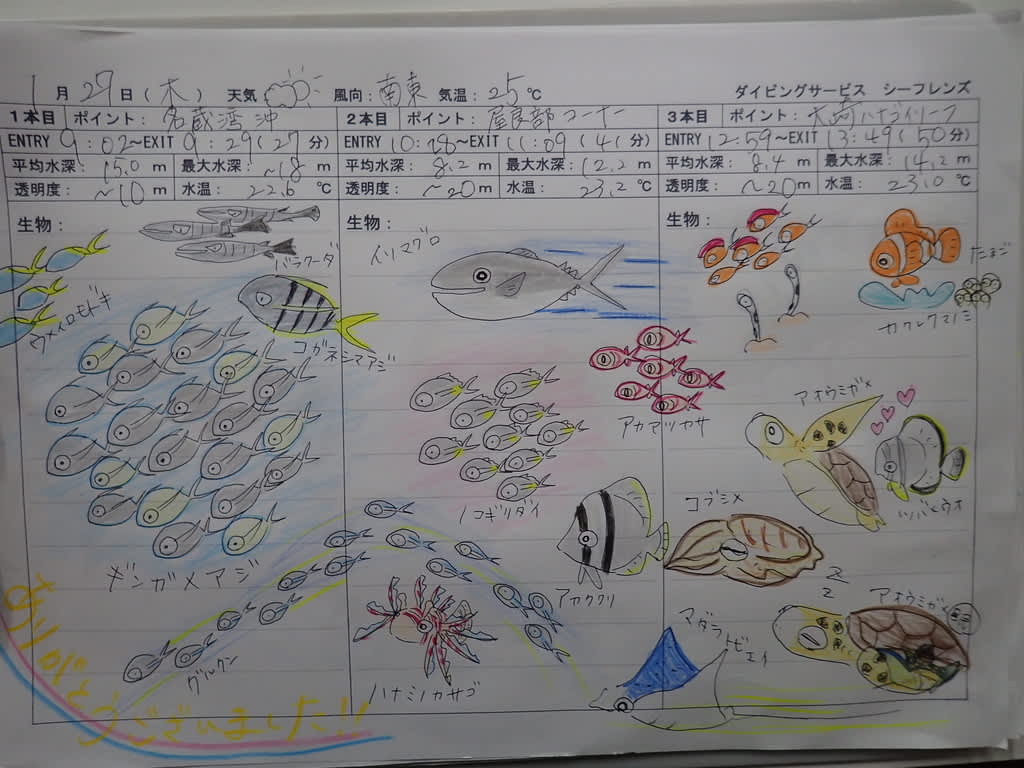 1月27日(木) 天気 風向:南東 気温:25℃ ダイビングサービス シーフレンズ
1本目 ポイント:名蔵湾沖
ENTRY 9:02~EXIT 9:29(27分)
平均水深:15.0m 最大水深:~18m
透明度:~10m 水温:22.6℃
2本目 ポイント:屋良部コーナー
ENTRY 10:28~EXIT 11:09(41分)
平均水深:8.2m 最大水深:12.2m
透明度:~20m 水温:23.2℃
3本目 ポイント:大崎ハナゴイリーフ
ENTRY 12:59~EXIT 13:49(50分)
平均水深:8.4m 最大水深:14.2m
透明度:~20m 水温:23.0℃
生物:
バラクーダ
ウメイロモドキ
コガネシマアジ
ギンガメアジ
グルクン
生物:
イソマグロ
アカマツカサ
ノコギリダイ
アカククリ
ハナミノカサゴ
生物:
たまご
カクレクマノミ
アオウミガメ
ツバメウオ
コブシメ
アオウミガメ
マダラトビエイ
ありがとうございました!!